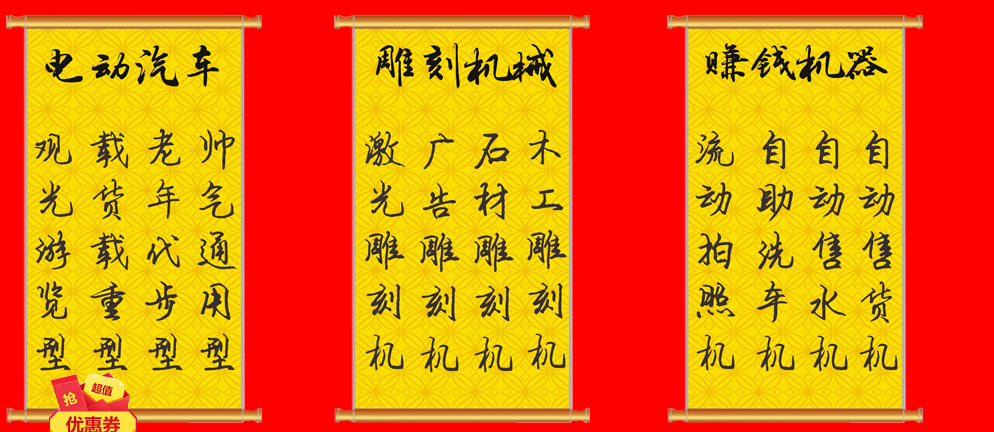 电动汽车
帅气通用型
老年代步型
载货载重型
观光游览型
雕刻机械
木工雕刻机
石材雕刻机
广告雕刻机
激光雕刻机
赚钱机器
自动售货机
自动售水机
自助洗车机
流动拍照机
抢
超值
优惠券